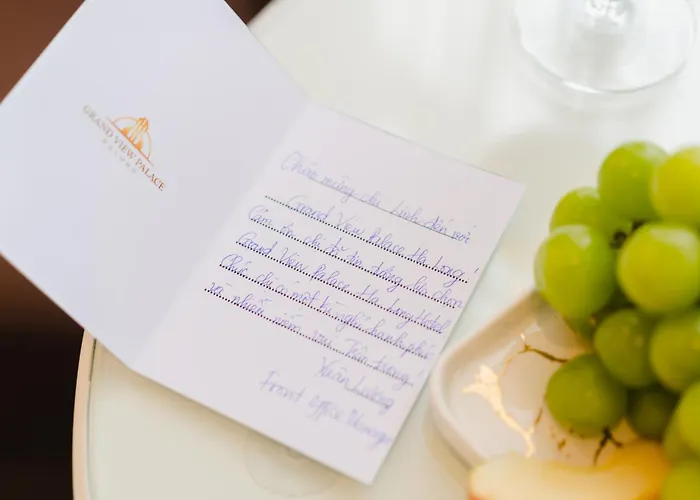 GRAND VIEW PALACE
Chào mừng chị Linh đến với
Grand View Palace Ha Long!
Cảm ơn chị đã tin tưởng lựa chọn
Grand View Palace Ha Long Hotel
Chúc chị có một kì nghỉ hạnh phúc
và nhiều niềm vui. Trân trọng!
Xuân Lương
Front Office Manager